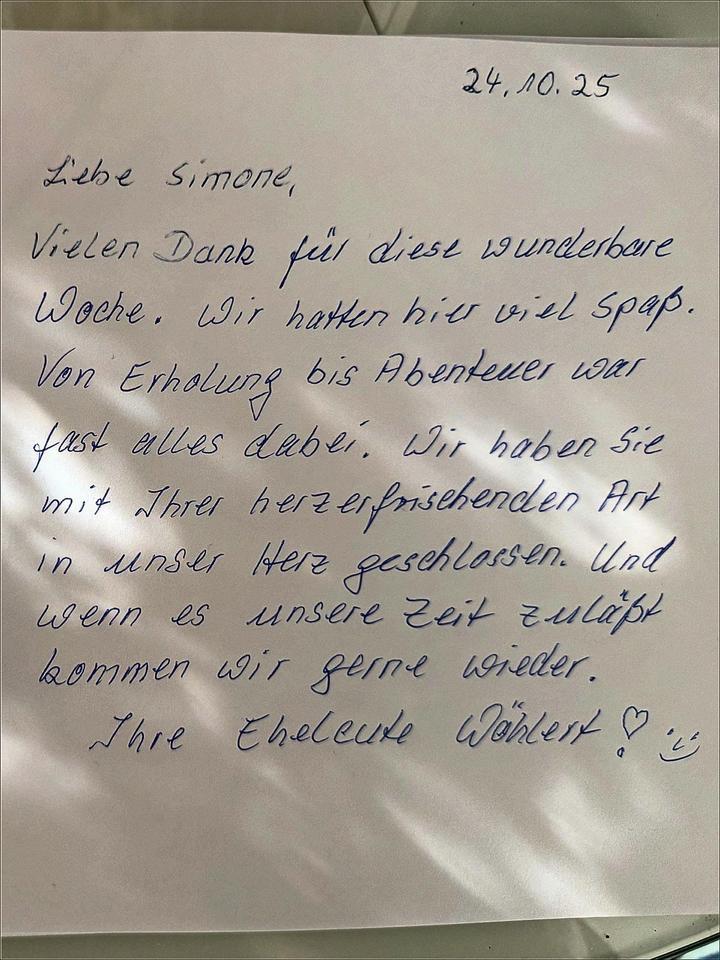 24.10.25
Liebe Simone,
Vielen Dank für diese wunderbare
Woche. Wir hatten hier viel Spaß.
Von Erholung bis Abenteuer war
fast alles dabei. Wir haben Sie
mit Ihrer herzerfrischenden Art
in unser Herz geschlossen. Und
wenn es unsere Zeit zuläßt
kommen wir gerne wieder.
Ihre Eheleute Wöhlert